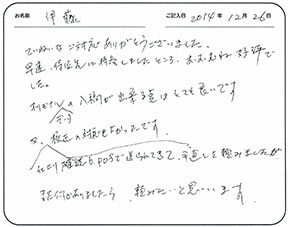 お名前 伊藤 ご記入日 2014年12月26日
ていねいなご対応ありがとうございました。
早速、得意先に持参しましたところ、おおむね好評で
した。
入稿が出来る点はとても良いです
又、校正の対応もよかったです。
確認もPDFで送られてきて、手直しを頼みましたが
ありましたら、頼みたいと思います。